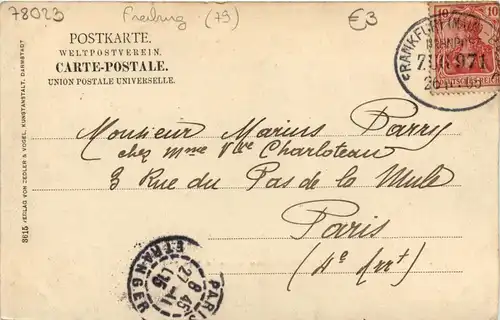 78023
Freiburg (79)
€3
POSTKARTE.
WELTPOSTVEREIN.
CARTE-POSTALE.
UNION POSTALE UNIVERSELLE.
10
10
FRANKFURT (MAIN)
BAHNPOST
ZUG 971
Monsieur Marius Parry
chez Mme Vve Charloteau
3 Rue du Pas de la Mule
Paris
(4e arrt)
3615 VERLAG VON ZEDLER & VOGEL, KUNSTANSTALT, DARMSTADT
PARIS
ETRANGER